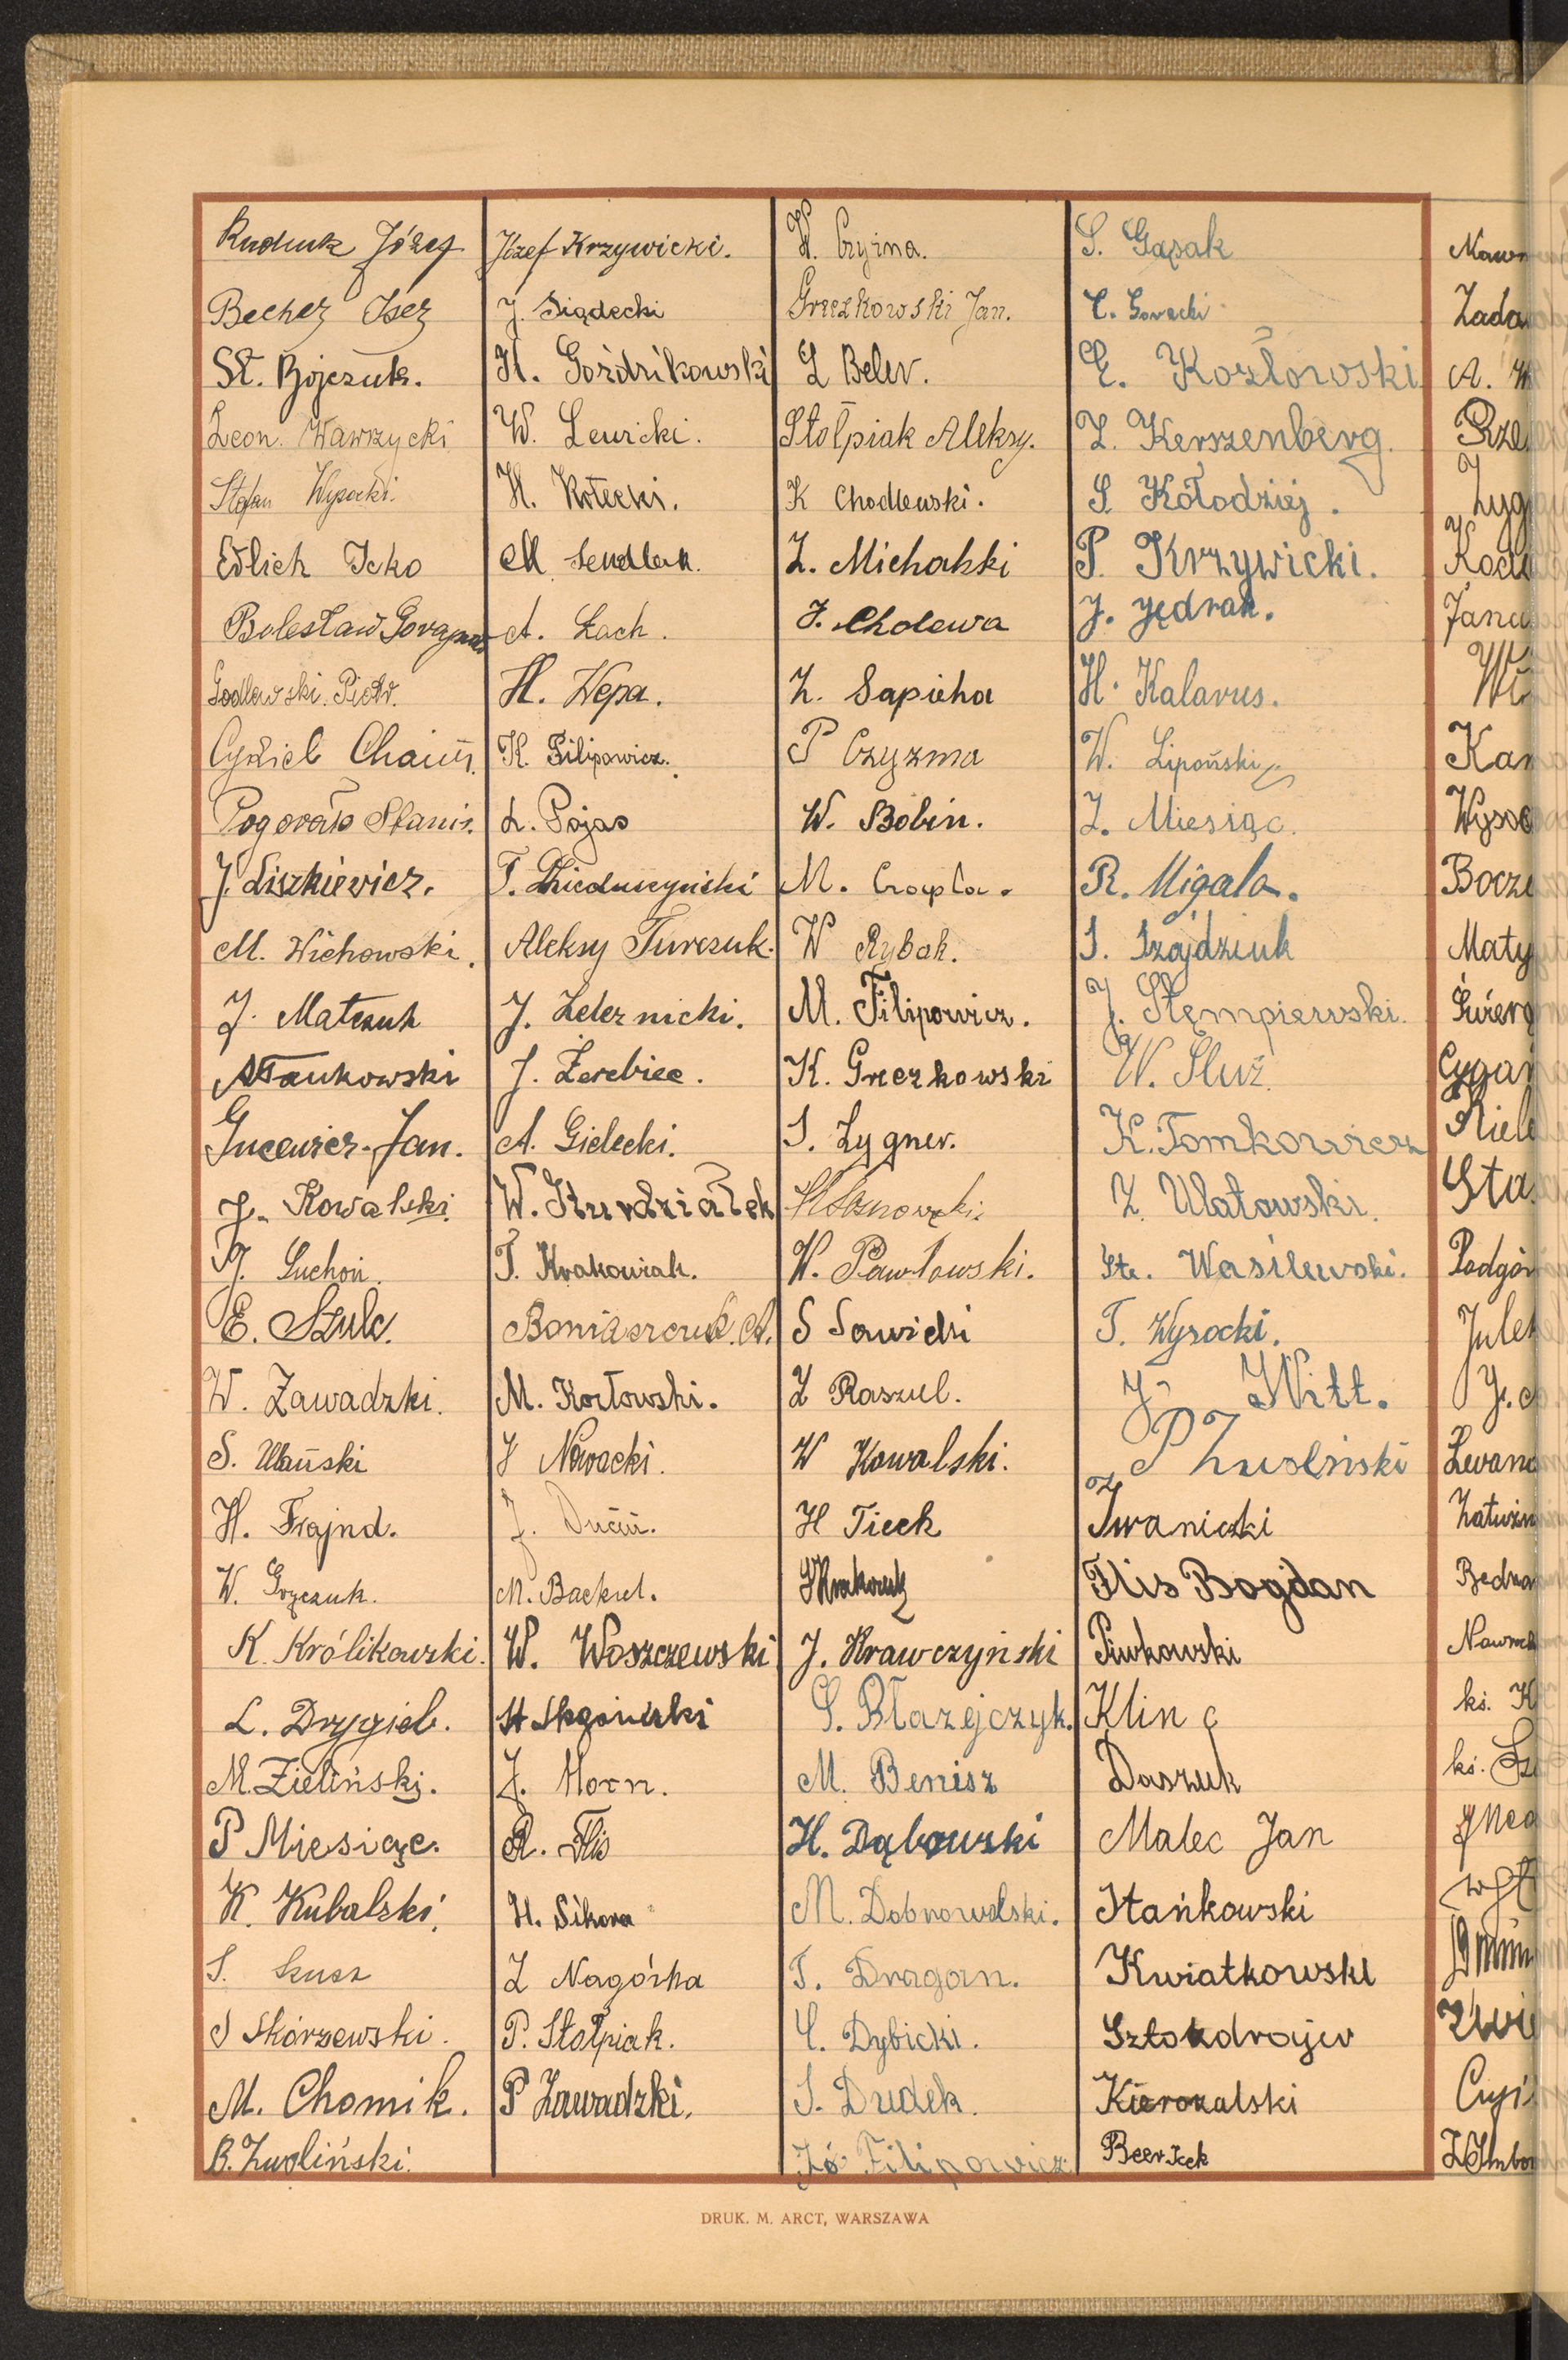 Ruduk Józef
Becher Iser
St. Bojczuk.
Leon. Wawrzycki
Stefan Wysocki.
Edlich Icko
Bolesław
Godlewski. Piotr.
Cykiel Chaim.
Stanis.
J. Liszkiewicz.
M. Wichowski.
J. Matczuk
Gucewicz Jan.
J. Kowalski.
J. Suchoń.
E. Szulc.
W. Zawadzki.
S. Ulański
H. Frajnd.
W. Gryczuk.
K. Królikowski.
L. Drygiel.
M. Zieliński.
P Miesiąc.
K. Kubalski.
S.
S Skórzewski.
M. Chomik.
B. Zwoliński.
Józef Krzywicki.
J. Siądecki
H. Goździkowski
W. Lewicki.
H. Kotecki.
M. Sendlak.
A. Łach.
H. Wepa.
K. Filipowicz.
L. Pojas
T. Dzieduszyński
Aleksy Turczuk.
J. Zeleznicki.
J. Źerebiec.
A. Gielecki.
W. Kurdziałek
T. Krakowiak.
Boniaszczuk. A.
M. Kozłowski.
J Nowacki.
J.
M. Backiel.
W. Woszczewski
J. Horn.
R. Flis
H. Sikora
Z Nagórka
P. Stołpiak.
P Zawadzki.
W. Czyżna.
Greczkowski Jan.
L Beler.
Stołpiak Aleksy.
K Chodlewski.
Z. Michalski
J. Cholewa
Z. Sapieha
P Czyzma
W. Bobin.
M. Czapla.
W Rybak.
M. Filipowicz.
K. Greczkowski
S. Zygner.
W. Pawłowski.
S Sawicki
Z Raszul.
W Kowalski.
H Tieck
J. Krawczyński
S. Błazejczyk.
M. Benisz
H. Dąbowski
M. Dobrowolski.
T. Dragan.
C. Dybicki.
S. Dudek.
Jó Filipowicz
S. Gąsak
C. Gorecki
E. Kozłowski
Z. Kerszenberg.
S. Kołodziej.
P. Krzywicki.
J. Jędrak.
H. Kalarus.
W. Lipoński
Z. Miesiąc.
R. Migala.
S. Szajdziuk
J. Stempierwski.
W. Sluź.
K. Tomkowicz
Z. Ulatowski.
Ste. Wasilewski.
T. Wysocki.
J. Witt.
P Zwoliński
Iwanicki
Flis Bogdan
Piwkowski
Klin
Daszuk
Malec Jan
Stańkowski
Kwiatkowski
Sztokdrajer
Kierozalski
Beer Icek
DRUK. M. ARCT, WARSZAWA